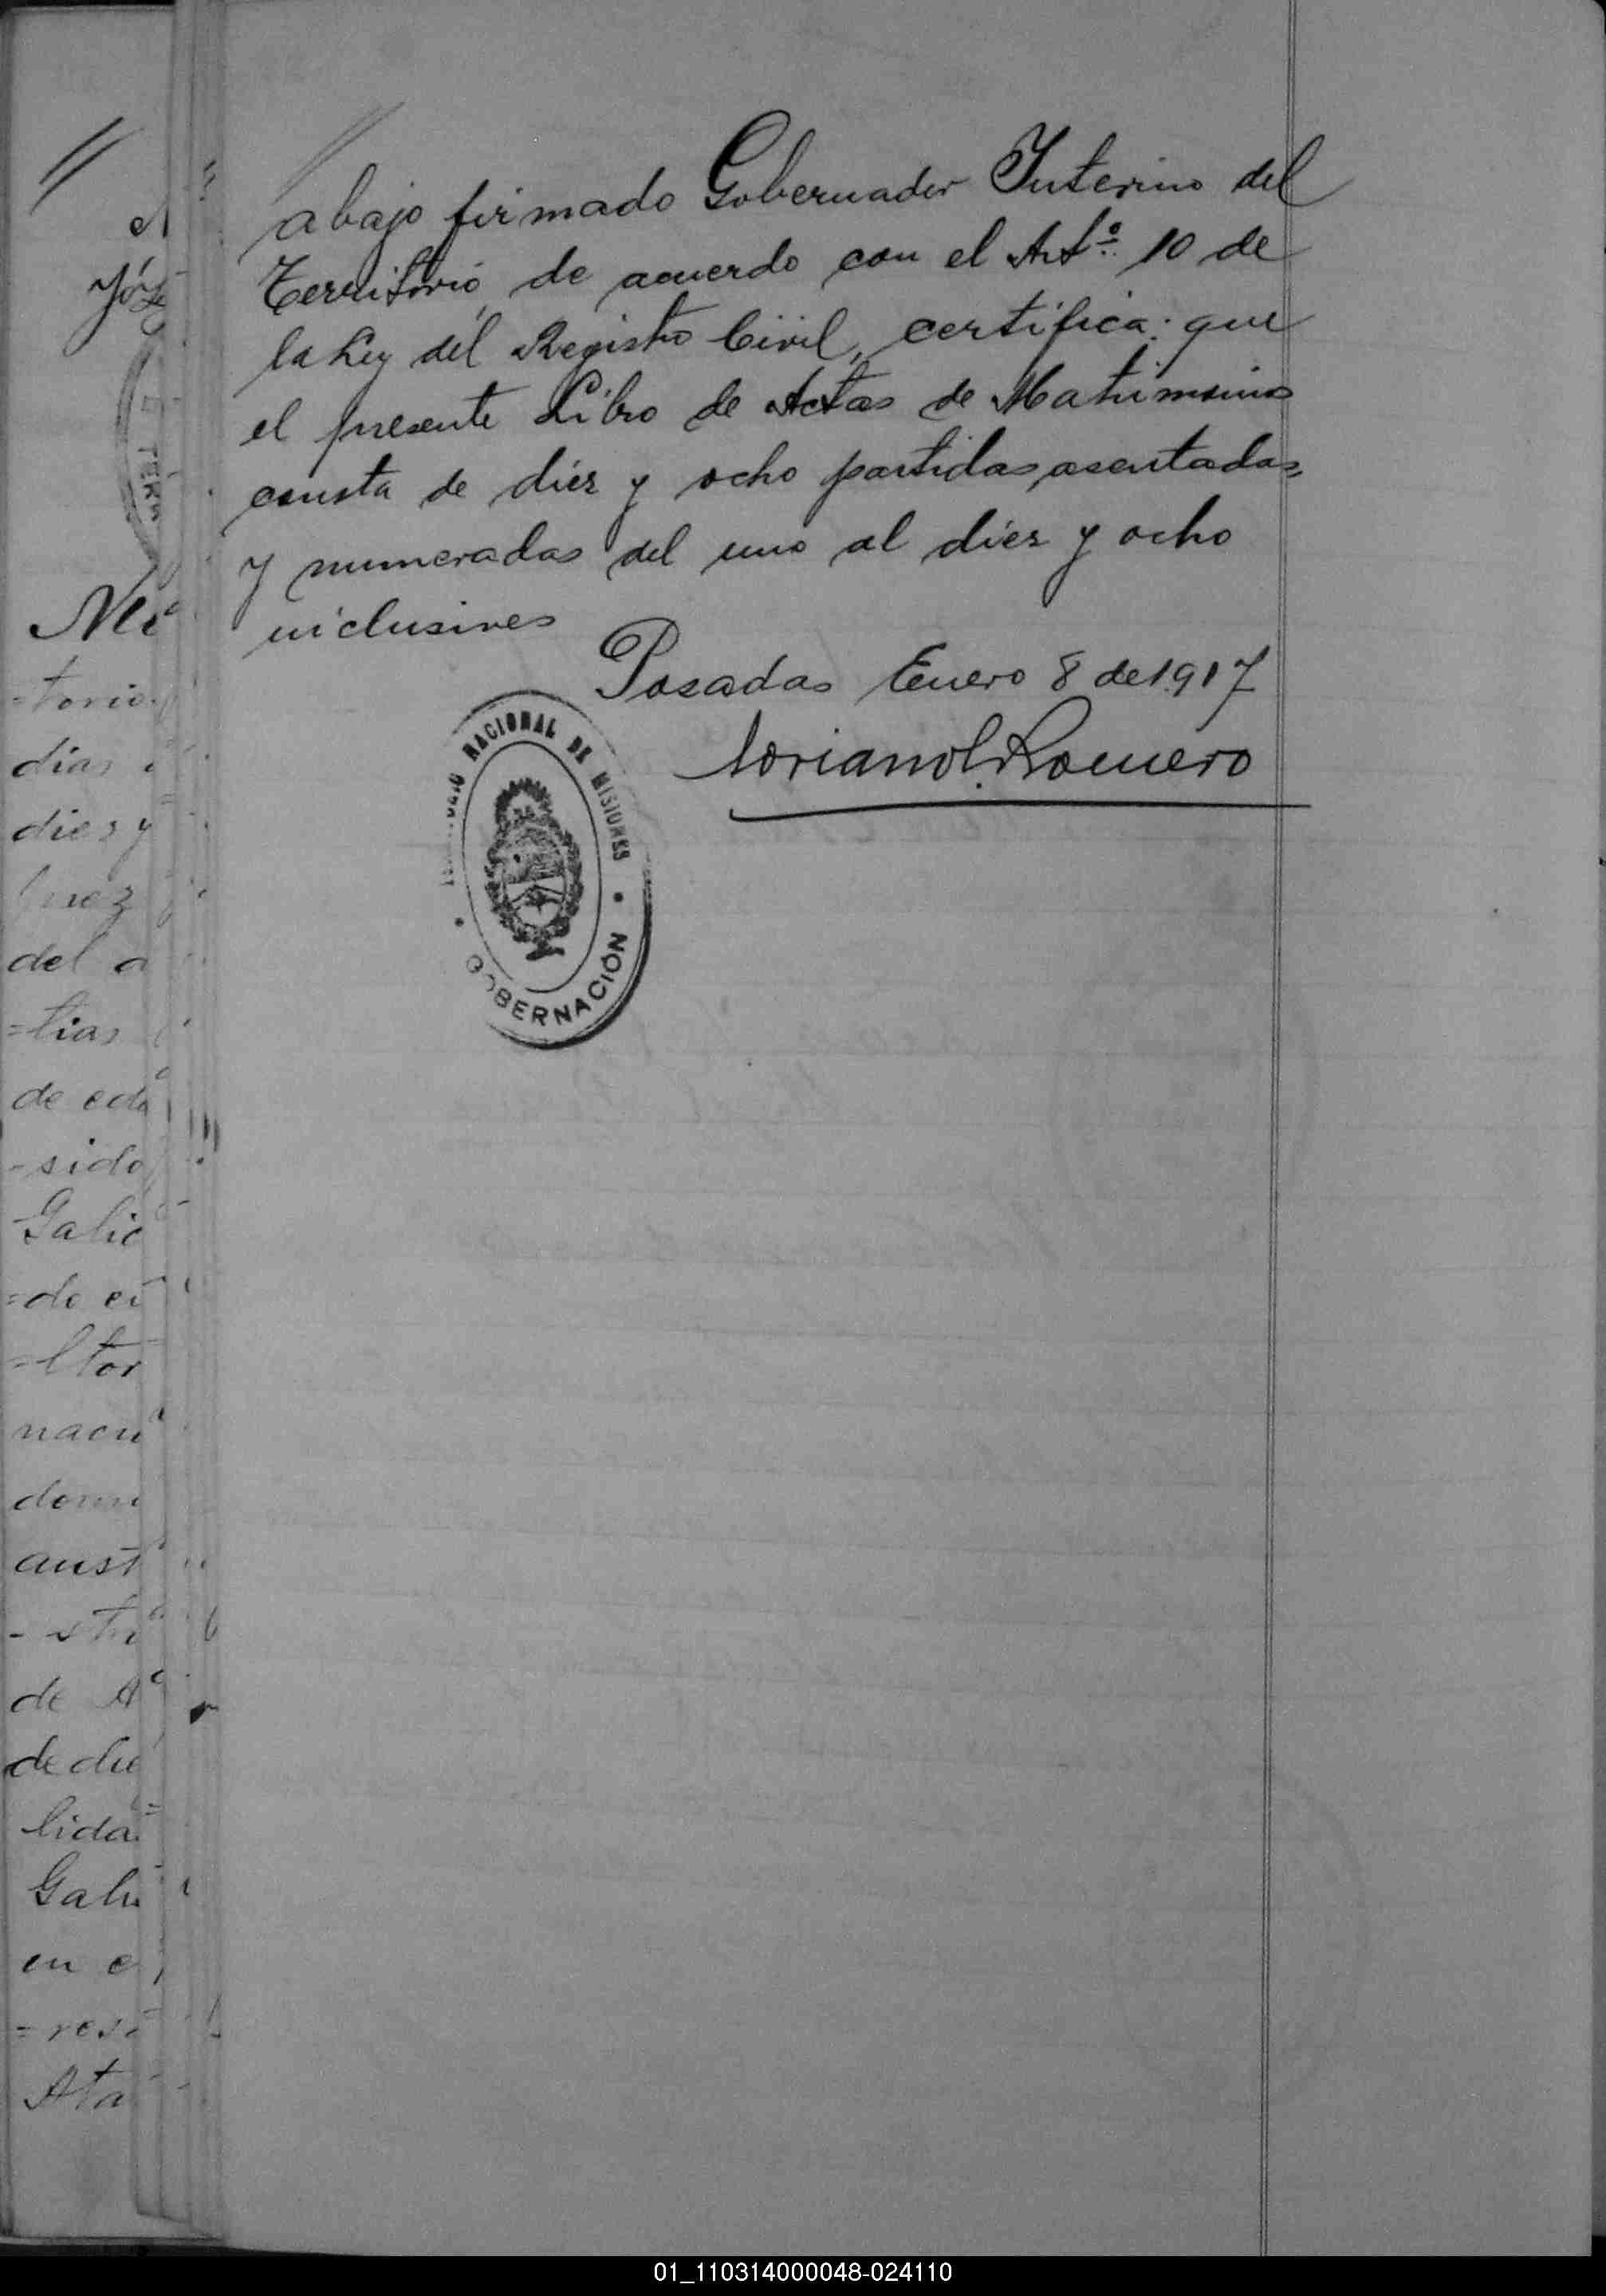 abajo firmado Gobernador Interino del
Territorio, de acuerdo con el Artº 10 de
la Ley del Registro Civil, certifica: que
el presente Libro de Actas de Matrimonios
consta de diez y ocho partidas asentadas
y numeradas del uno al diez y ocho
inclusives
Posadas Enero 8 de 1917
Romero
NACIONAL DE MISIONES
GOBERNACIÓN
=torio
dias
dies y
del
=tias
de eda
-sido
Galic
=do
=ltor
naci
domi
aust
de A
de die
lida
Gali
en
=resi
Ata
01_110314000048-024110